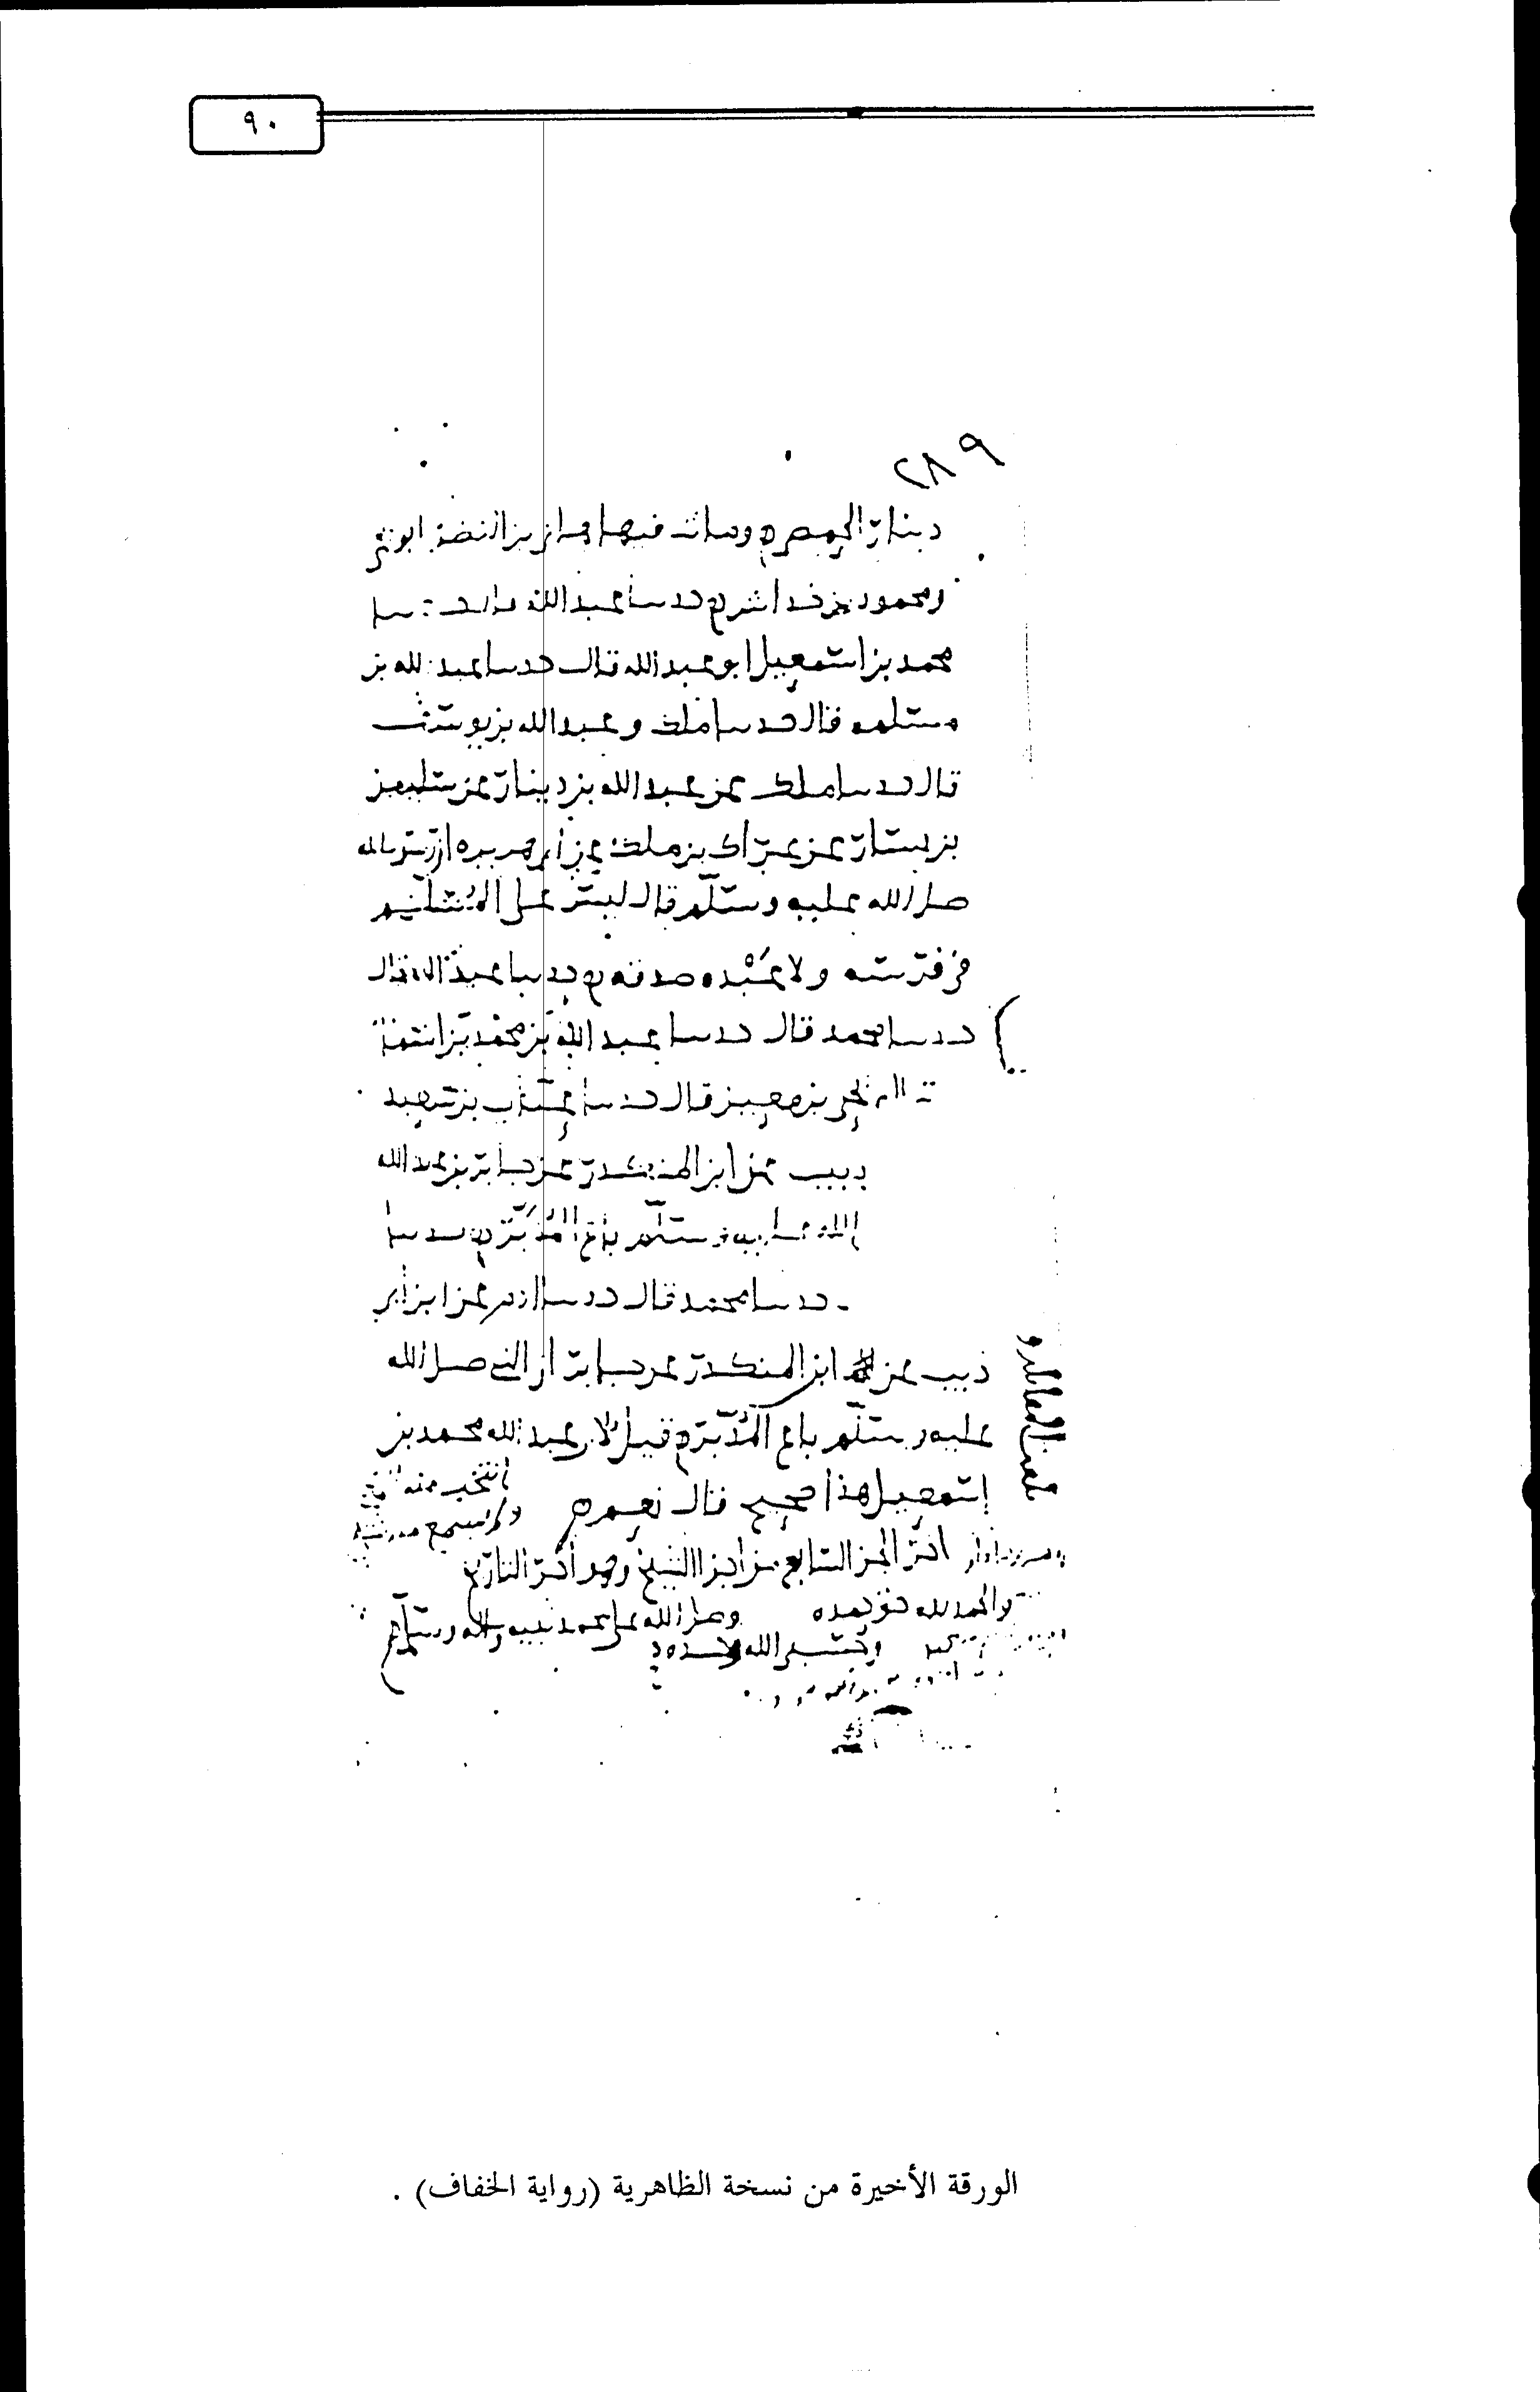 ٩٠
٢٨٩
دينار الحمصي ومات فيها هرون بن النضر ابو
ومحمود بن خداش حدثنا عبد الله قال حدثنا
محمد بن اسمعيل ابو عبد الله قال حدثنا عبد الله بن
مسلمه قال حدثنا ملك وعبد الله بن يوسف
قال حدثنا ملك عن عبد الله بن دينار عن سليمن
بن يسار عن عراك بن ملك عن أبي هريره ان رسول الله
صلى الله عليه وسلم قال ليس على المسلم
في فرسه ولا عبده صدقه حدثنا عبد الله قال
حدثنا محمد قال حدثنا عبد الله بن محمد بن اسمعيل
يحيى بن معين قال حدثنا عتاب بن سعيد
ذيب عن ابن المنكدر عن جابر بن عبد الله
الله عليه وسلم باع المدبر حدثنا
حدثنا محمد قال حدثنا ادم عن ابن أبي
ذيب عن ابن المنكدر عن جابر ان النبي صلى الله
عليه وسلم باع المدبر قيل لأبي عبد الله محمد بن
اسمعيل هذا صحيح قال نعم
انتخب منه
آخر الجزء السابع من أجزاء الشيخ وهو آخر التاريخ
والحمد لله حق حمده وصلى الله على محمد نبيه وآله وسلم
وحسبي الله وحده
الورقة الأخيرة من نسخة الظاهرية (رواية الخفاف) .